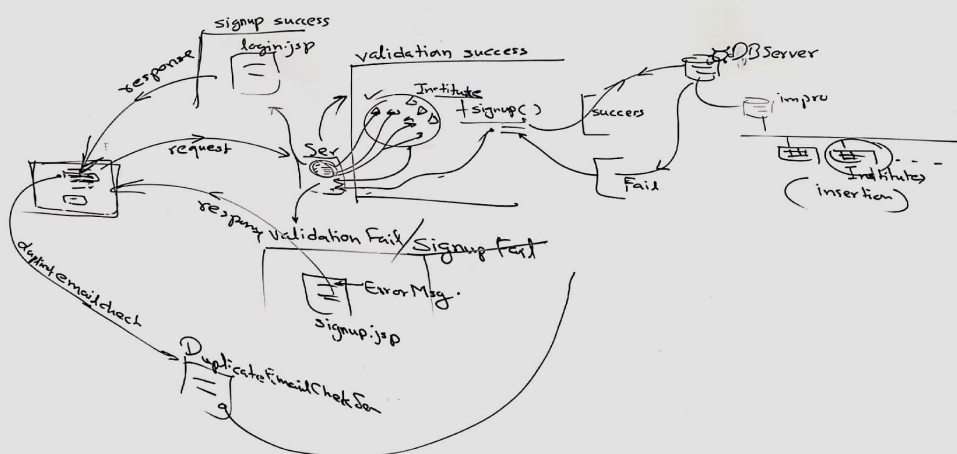 signup success
login.jsp
response
validation success
Institute
+signup( )
success
DB Server
impro
request
Ser
Fail
Institutes
(insertion)
response
validation Fail/Signup Fail
ErrorMsg.
signup.jsp
emailcheck
DuplicateEmailCheckSer